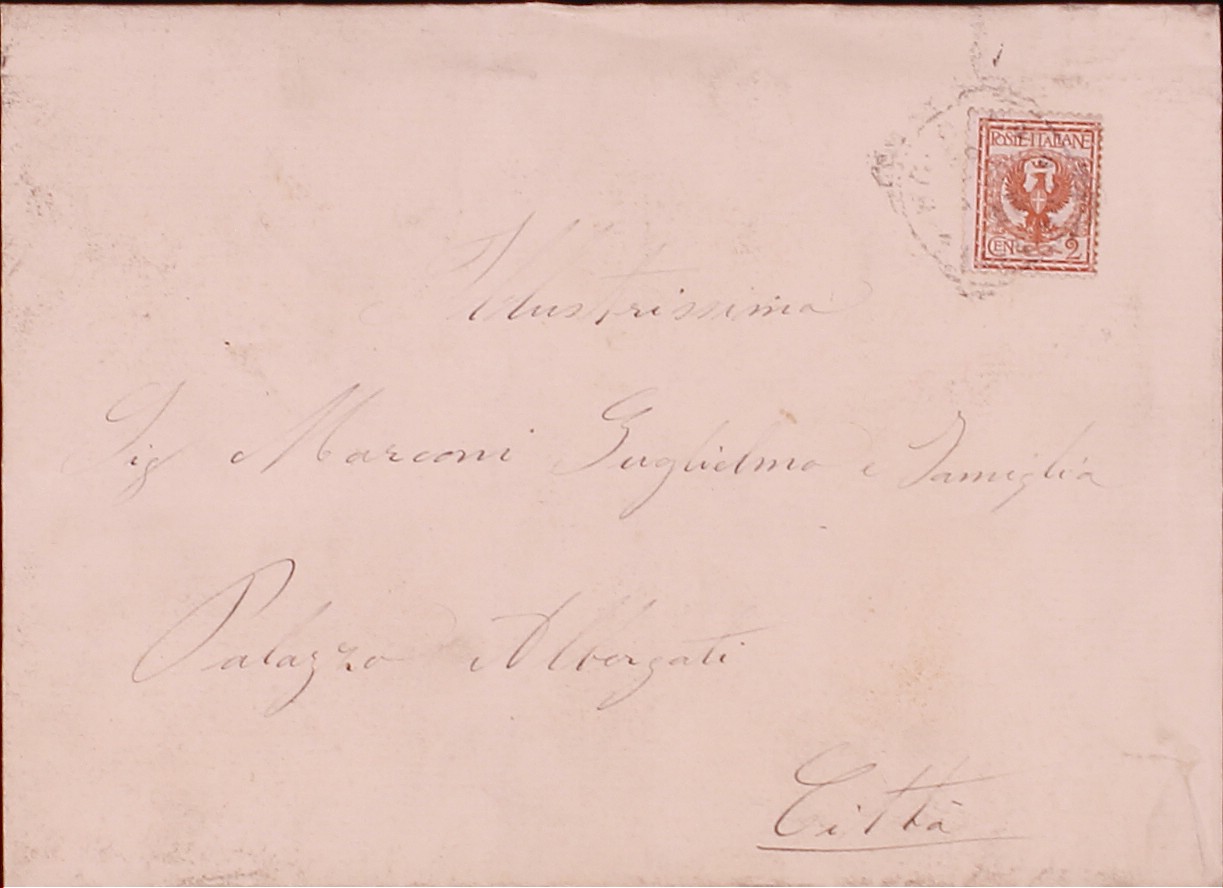 POSTE·ITALIANE
CEN 2
Illustrissima
Sig Marconi Guglielmo e Famiglia
Palazzo Albergati
Città